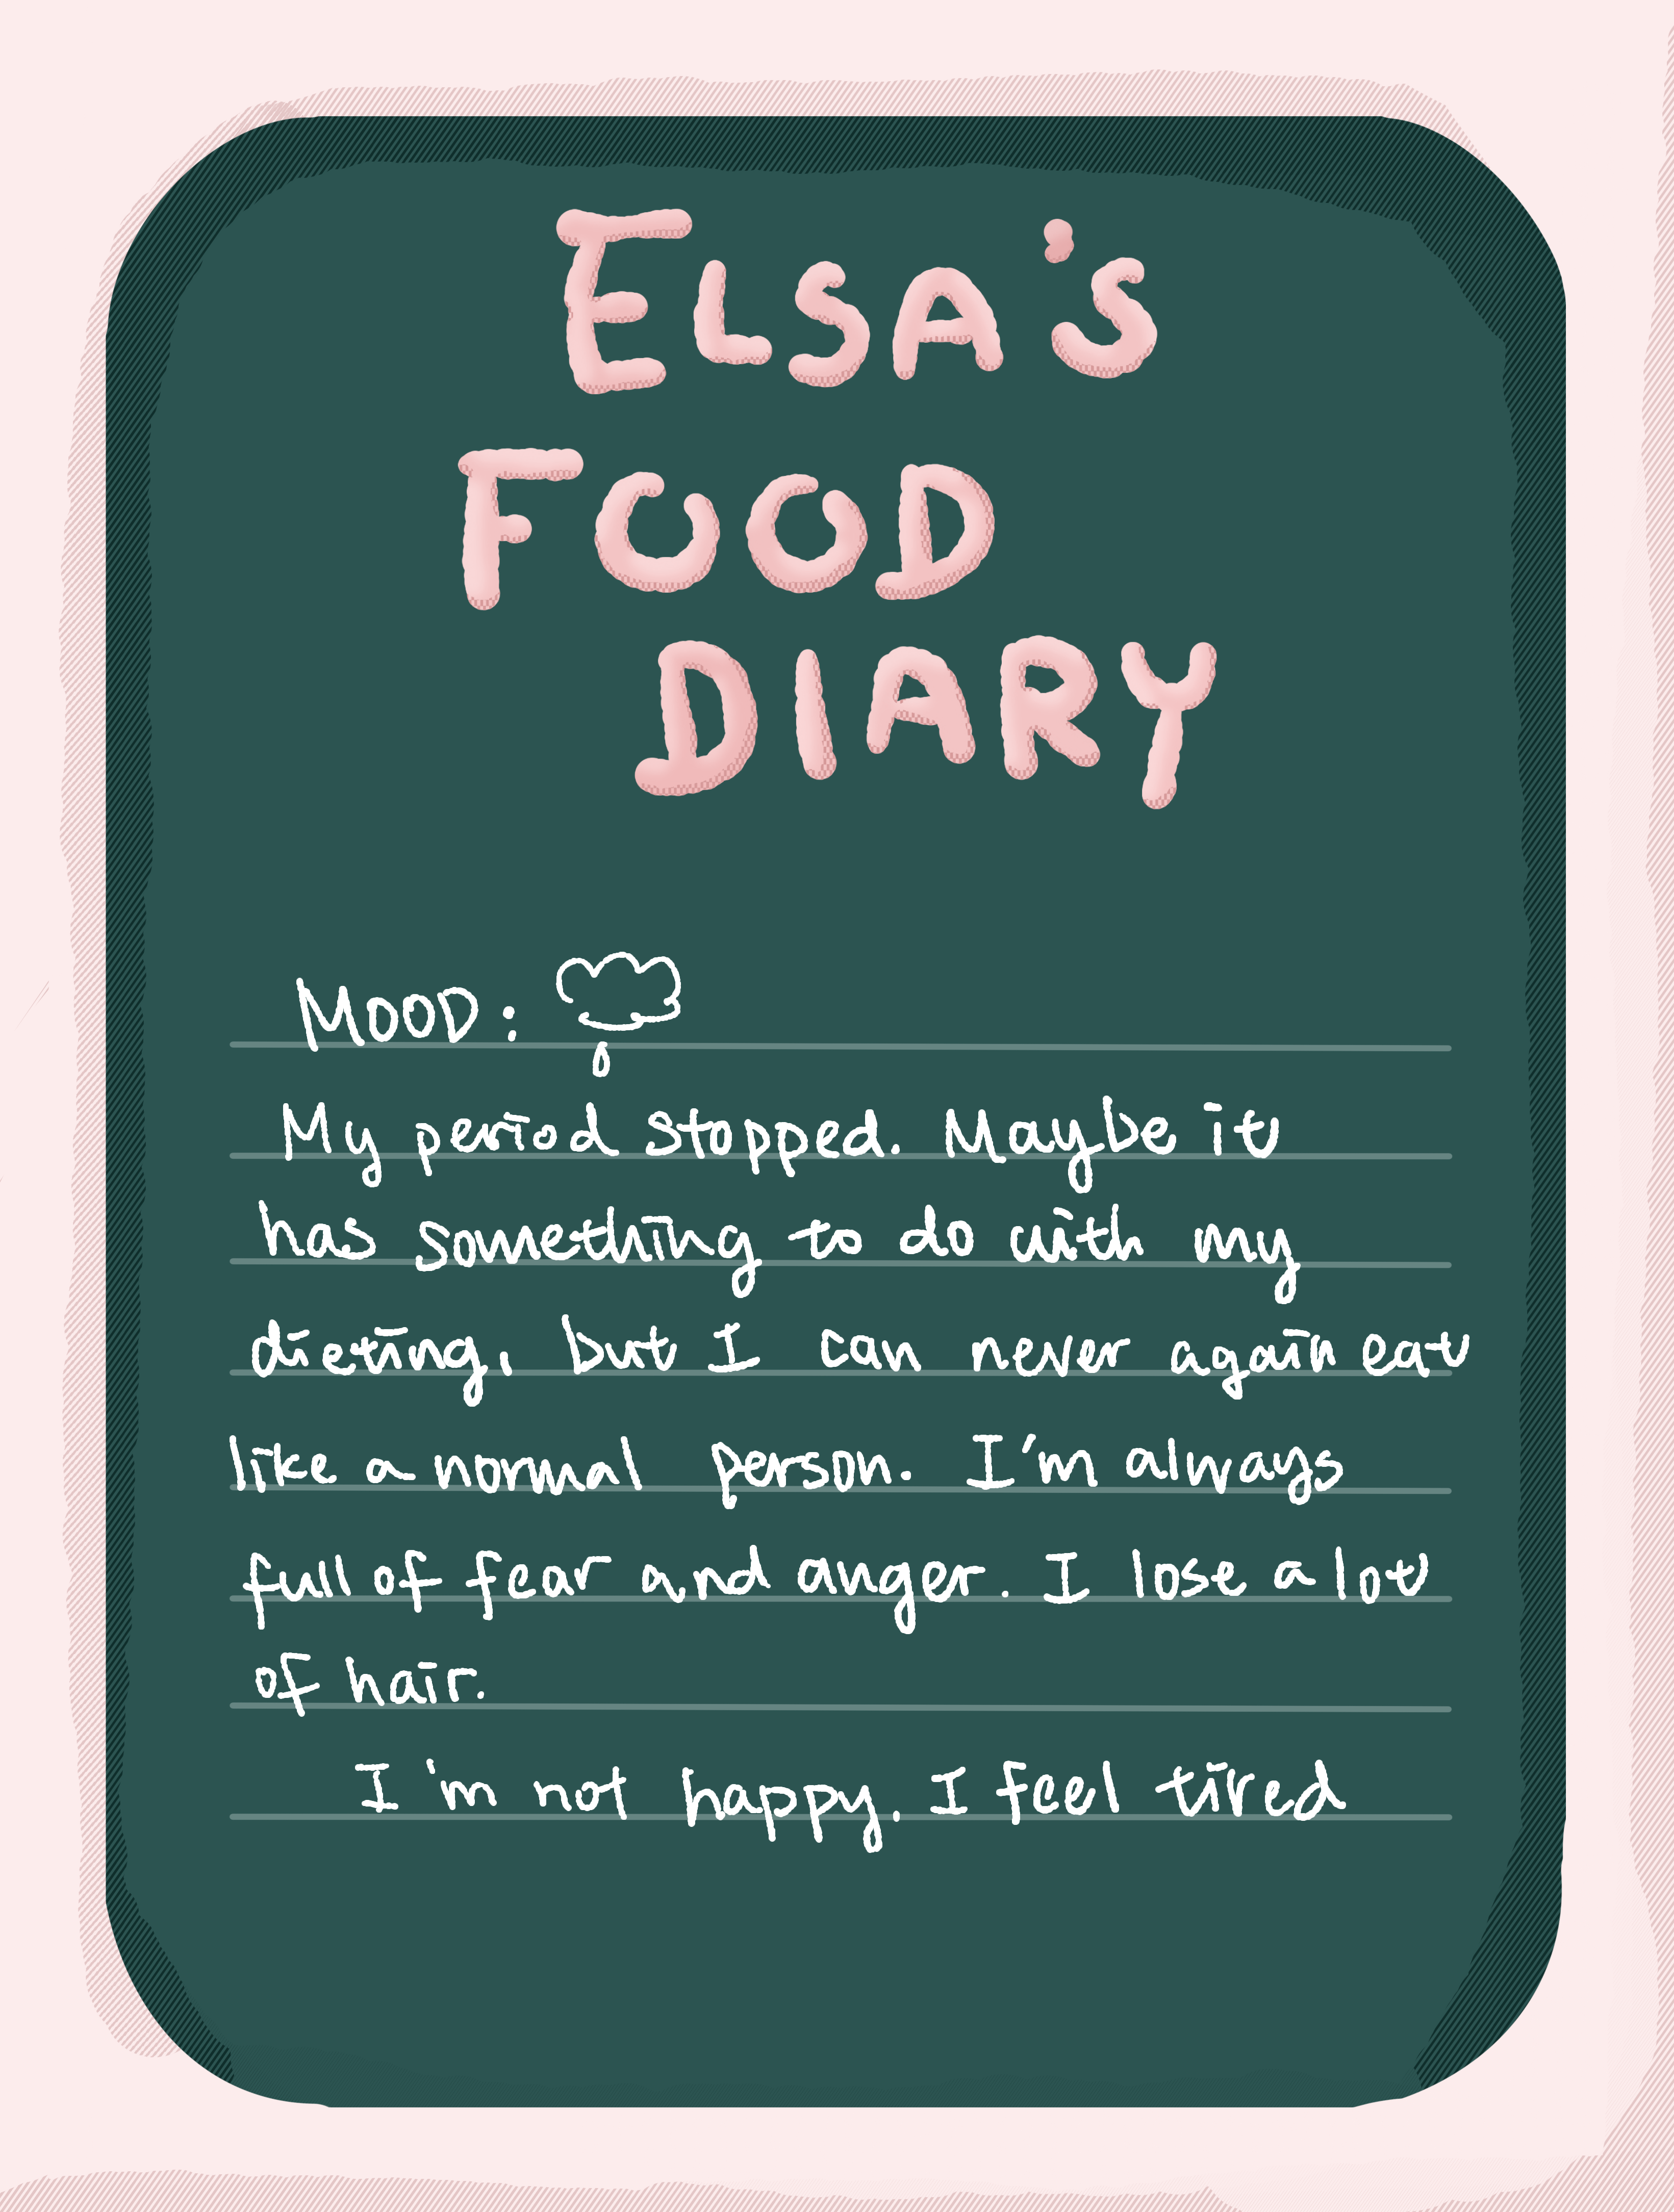 ELSA'S
FOOD
DIARY
MOOD:
My period stopped. Maybe it
has something to do with my
dieting, but I can never again eat
like a normal person. I'm always
full of fear and anger. I lose a lot
of hair.
I'm not happy. I feel tired